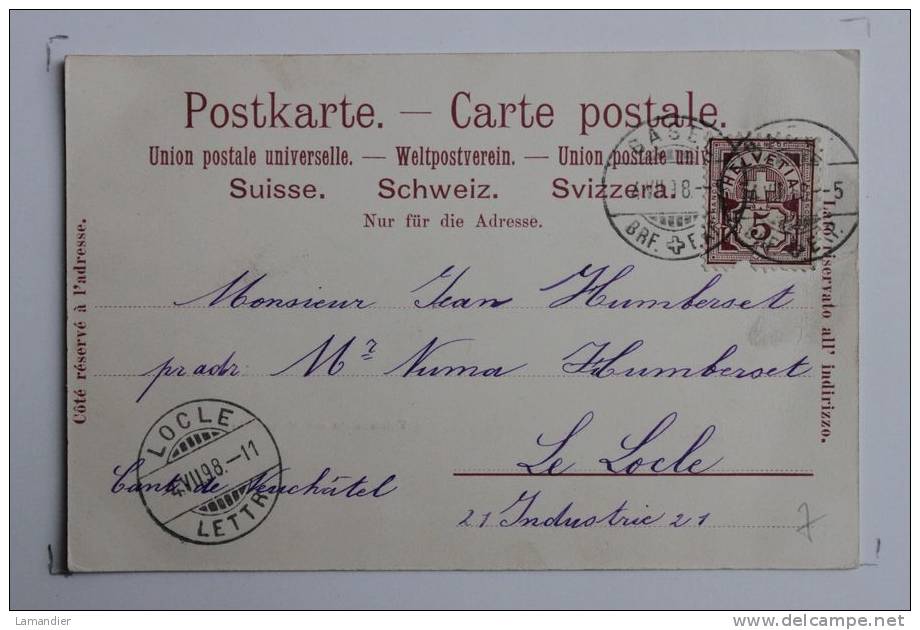 Postkarte. — Carte postale.
Union postale universelle. — Weltpostverein. — Union postale uni
Suisse. Schweiz. Svizzera.
Nur für die Adresse.
BASEL
VII.98.–
BRF. E
HELVETIA
5
–5
Côté réservé à l'adresse.
Lato riservato all' indirizzo.
Monsieur Jean Humberset
pr adr Mr Numa Humberset
Le Locle
Cant. de Neuchâtel
21 Industrie 21
LOCLE
4.VII.98.–11
LETTR
7
Lamandier
www.delcampe.net